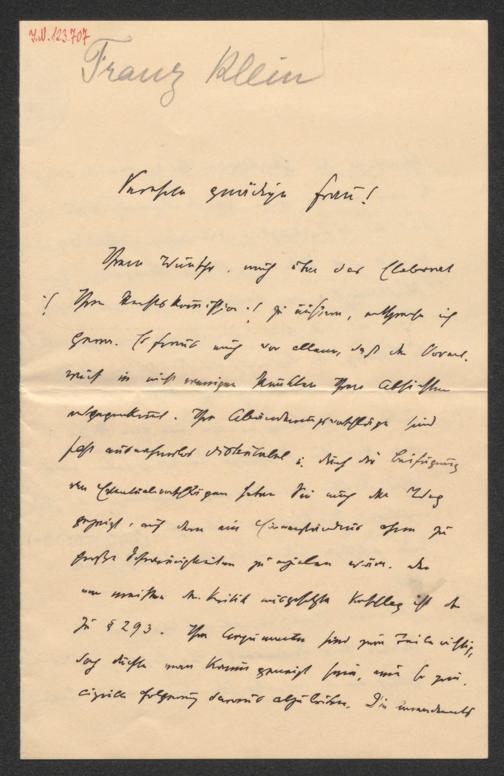 J.N. 123.707
Franz Klein
Verehrte gnädige Frau!
Ihrem Wunsche, mich über das Elaborat
Ihrer Rechtskommission zu äußern, entspreche ich
gerne. Es freut mich vor allem, daß der Vorent-
wurf in nicht wenigen Punkten Ihren Absichten
entgegenkommt. Ihre Abänderungsvorschläge sind
fast ausnahmslos diskutabel u. durch die Beifügung
von Eventualvorschlägen haben Sie auch den Weg
gezeigt, auf dem ein Einverständnis ohne zu
große Schwierigkeiten zu erzielen wäre. Der
am meisten der Kritik ausgesetzte Vorschlag ist der
zu § 293. Ihre Argumente sind zum Teile richtig,
doch dürfte man kaum geneigt sein, eine so prin-
cipielle Folgerung daraus abzuleiten. Die